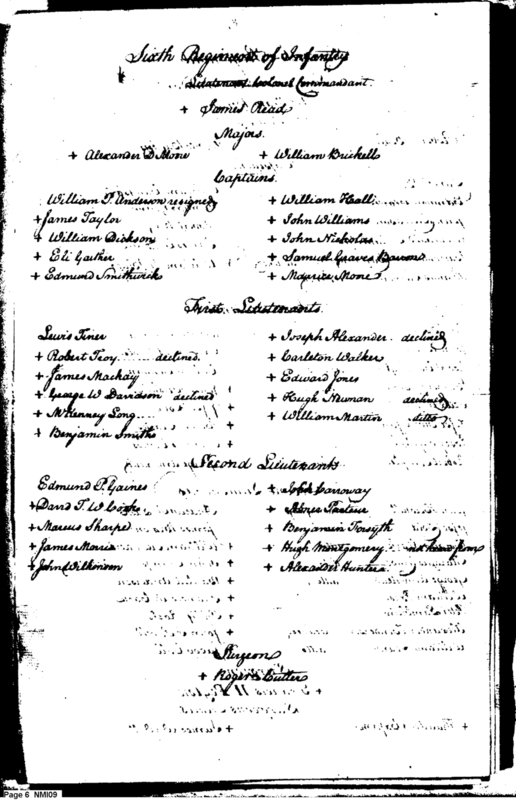 Sixth Regiment of Infantry
Lieutenant Colonel Commandant.
+ James Read
Majors.
+ Alexander D Moore + William Brickell
Captains.
William P. Anderson resigned + William Hall
+ James Taylor + John Williams
+ William Dickson + John Nickolas
+ Eli Gaither + Samuel Graves Barron
+ Edmund Smithwick + Maurice Moore
First Lieutenants.
Lewis Tiner + Joseph Alexander declined
+ Robert Troy declined + Carleton Walker
+ James Mackay + Edward Jones
+ George W Davidson declined + Hugh Newman declined
+ McKenney Long + William Martin ditto
+ Benjamin Smith
Second Lieutenants
Edmund P. Gaines + Caraway
+ David T. W. Cooke +
+ Marcus Sharpe + Benjamin Forsyth
+ James Morris + Hugh Montgomery not heard from
+ John Wilkinson + Alexander Hunter
Surgeon
+ Roger Cutler
Page 6 NMI09